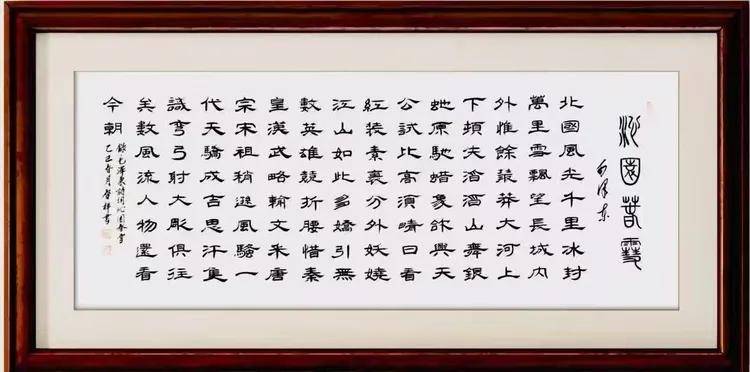 沁園春雪
毛澤東
北國風光千里冰封
萬里雪飄望長城內
外惟餘莽莽大河上
下頓失滔滔山舞銀
蛇原馳蜡象欲與天
公試比高須晴日看
紅裝素裹分外妖嬈
江山如此多嬌引無
數英雄競折腰惜秦
皇漢武略輸文采唐
宗宋祖稍遜風騷一
代天驕成吉思汗隻
識彎弓射大彫俱往
矣數風流人物還看
今朝
錄毛澤東詩詞沁園春雪
乙巳春月 祥書